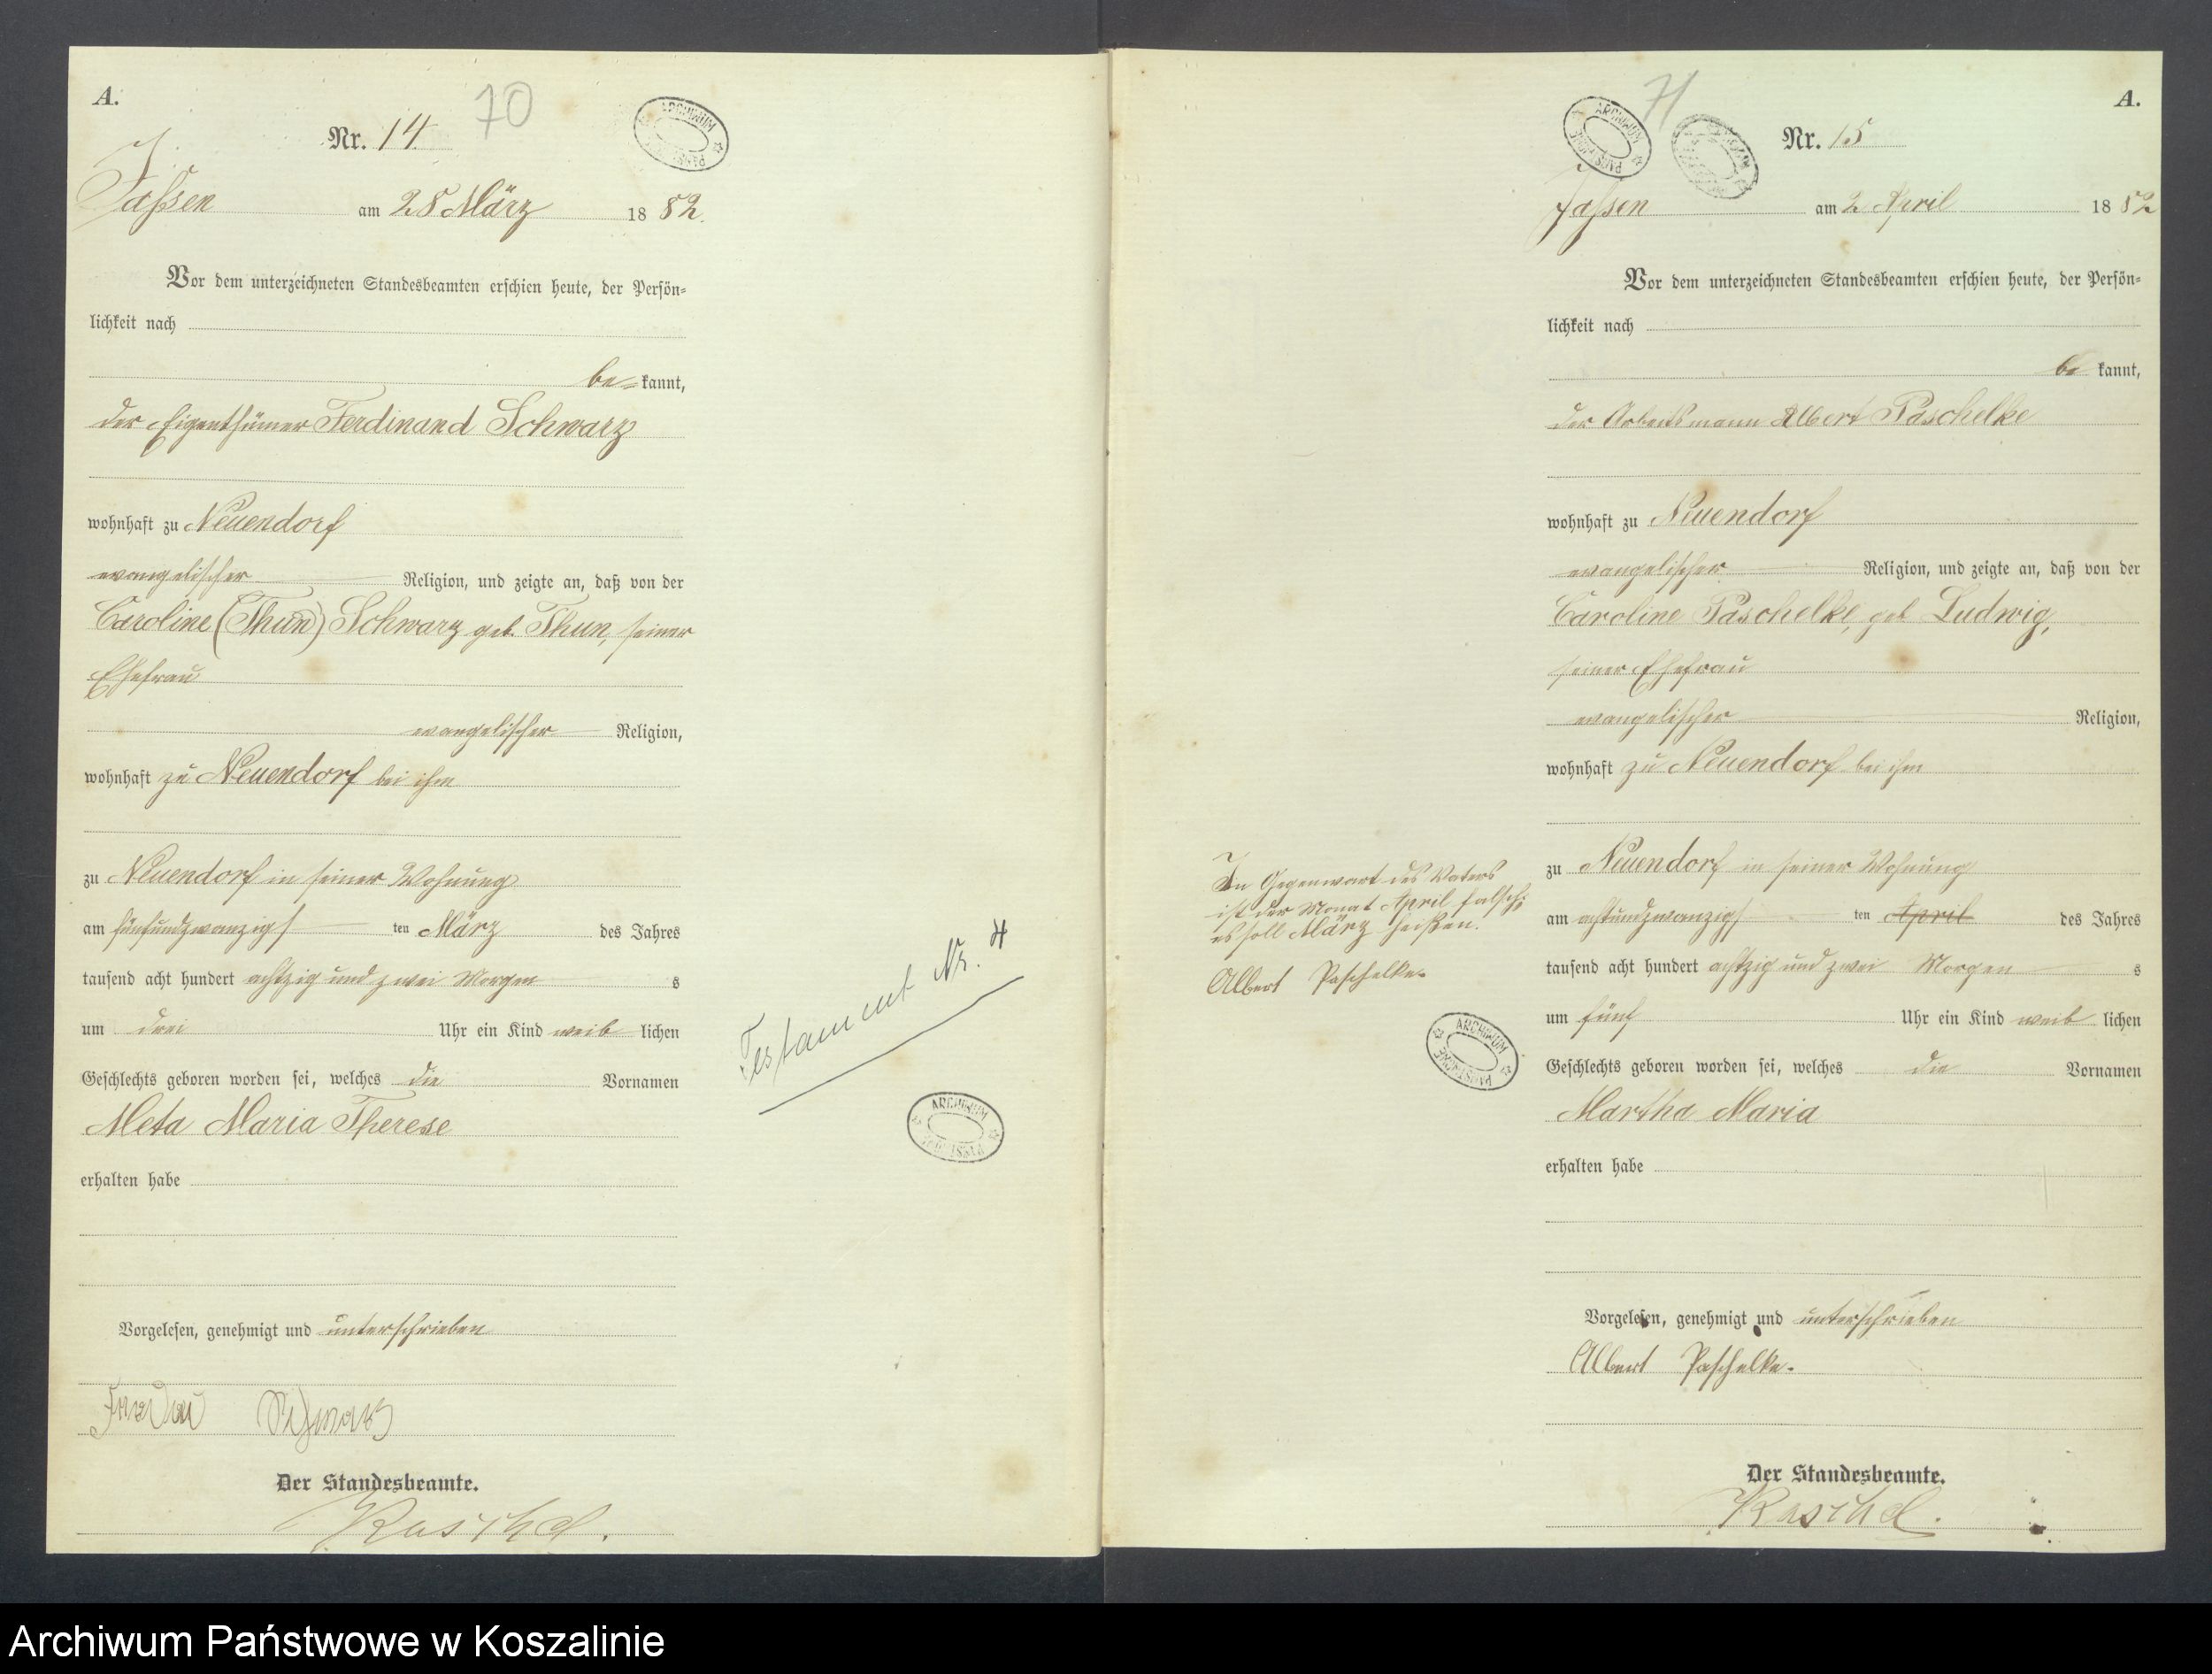 A.
Nr. 14
70
ARCHIWUM PAŃSTWOWE
Jassen am 28 März 1882.
Vor dem unterzeichneten Standesbeamten erschien heute, der Persön-
lichkeit nach
be= kannt,
der Eigenthümer Ferdinand Schwarz
wohnhaft zu Neuendorf
evangelischer Religion, und zeigte an, daß von der
Caroline (Thun) Schwarz geb. Thun, seiner
Ehefrau
evangelischer Religion,
wohnhaft zu Neuendorf bei ihm
zu Neuendorf in seiner Wohnung
am fünfundzwanzigs ten März des Jahres
tausend acht hundert achtzig und zwei Morgen s
um drei Uhr ein Kind weib lichen
Geschlechts geboren worden sei, welches die Vornamen
Meta Maria Therese
erhalten habe
Vorgelesen, genehmigt und unterschrieben
Schwarz
Der Standesbeamte.
Testament Nr. 4
ARCHIWUM PAŃSTWOWE
A.
71
ARCHIWUM PAŃSTWOWE
Nr. 15
Jassen am 2 April 1882
Vor dem unterzeichneten Standesbeamten erschien heute, der Persön-
lichkeit nach
be kannt,
der Arbeitsmann Albert Paschelke
wohnhaft zu Neuendorf
evangelischer Religion, und zeigte an, daß von der
Caroline Paschelke, geb Ludwig,
seiner Ehefrau
evangelischer Religion,
wohnhaft zu Neuendorf bei ihm
zu Neuendorf in seiner Wohnung
am achtundzwanzigs ten April des Jahres
tausend acht hundert achtzig und zwei Morgen s
um fünf Uhr ein Kind weib lichen
Geschlechts geboren worden sei, welches die Vornamen
Martha Maria
erhalten habe
Vorgelesen, genehmigt und unterschrieben
Albert Paschelke.
Der Standesbeamte.
In Gegenwart des Vaters
ist der Monat April falsch;
es soll März heißen.
Albert Paschelke.
ARCHIWUM PAŃSTWOWE
Archiwum Państwowe w Koszalinie